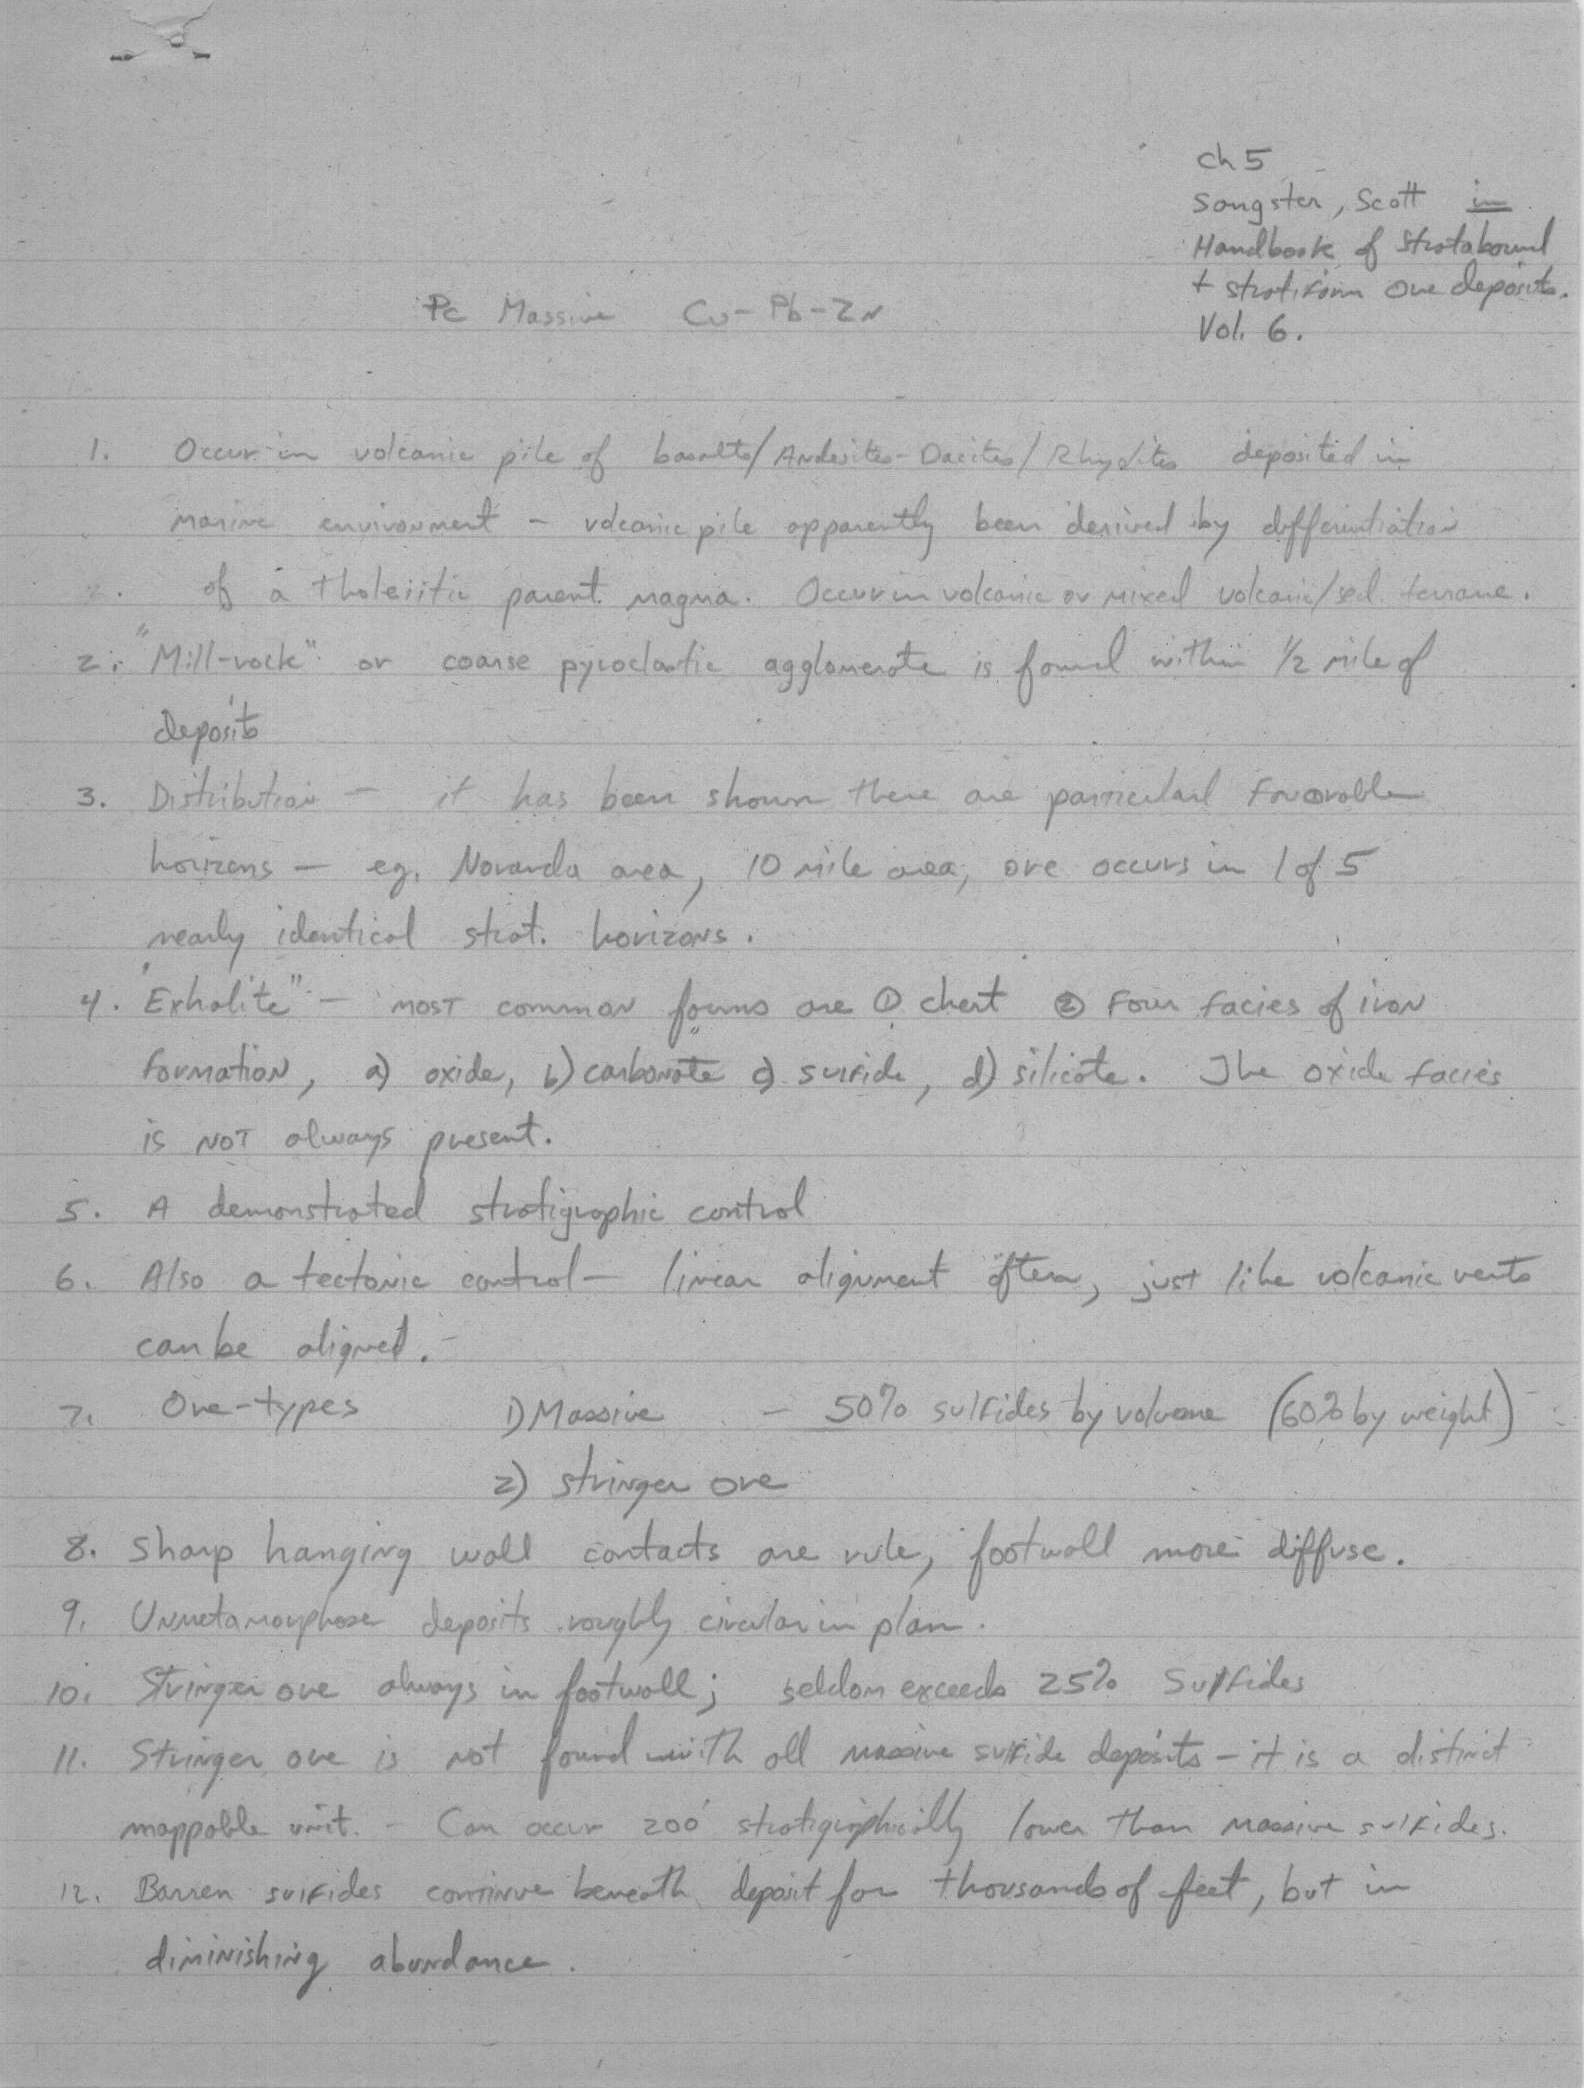 Ch 5
Sangster, Scott in
Handbook of Stratabound
+ stratiform ore deposits.
Vol. 6.
Pc Massive Cu-Pb-Zn
1. Occur in volcanic pile of basalts/Andesites-Dacites/Rhyolites deposited in
marine environment - volcanic pile apparently been derived by differentiation
2. of a tholeiitic parent magma. Occur in volcanic or mixed volcanic/sed. terrane.
2. "Mill-rock" or coarse pyroclastic agglomerate is found within 1/2 mile of
deposits
3. Distribution - it has been shown there are particular favorable
horizons - eg. Noranda area, 10 mile area, ore occurs in 1 of 5
nearly identical strat. horizons.
4. "Exhalite" - most common forms are ① chert ② Four facies of iron
formation, a) oxide, b) carbonate c) sulfide, d) silicate. The oxide facies
is NOT always present.
5. A demonstrated stratigraphic control
6. Also a tectonic control - linear alignment often, just like volcanic vents
can be aligned. -
7. Ore-types 1) Massive - 50% sulfides by volume (60% by weight)
2) stringer ore
8. Sharp hanging wall contacts are rule, footwall more diffuse.
9. Unmetamorphose deposits roughly circular in plan.
10. Stringer ore always in footwall; seldom exceeds 25% Sulfides
11. Stringer ore is not found with all massive sulfide deposits - it is a distinct
mappable unit. - Can occur 200' stratigraphically lower than massive sulfides.
12. Barren sulfides continue beneath deposit for thousands of feet, but in
diminishing abundance.